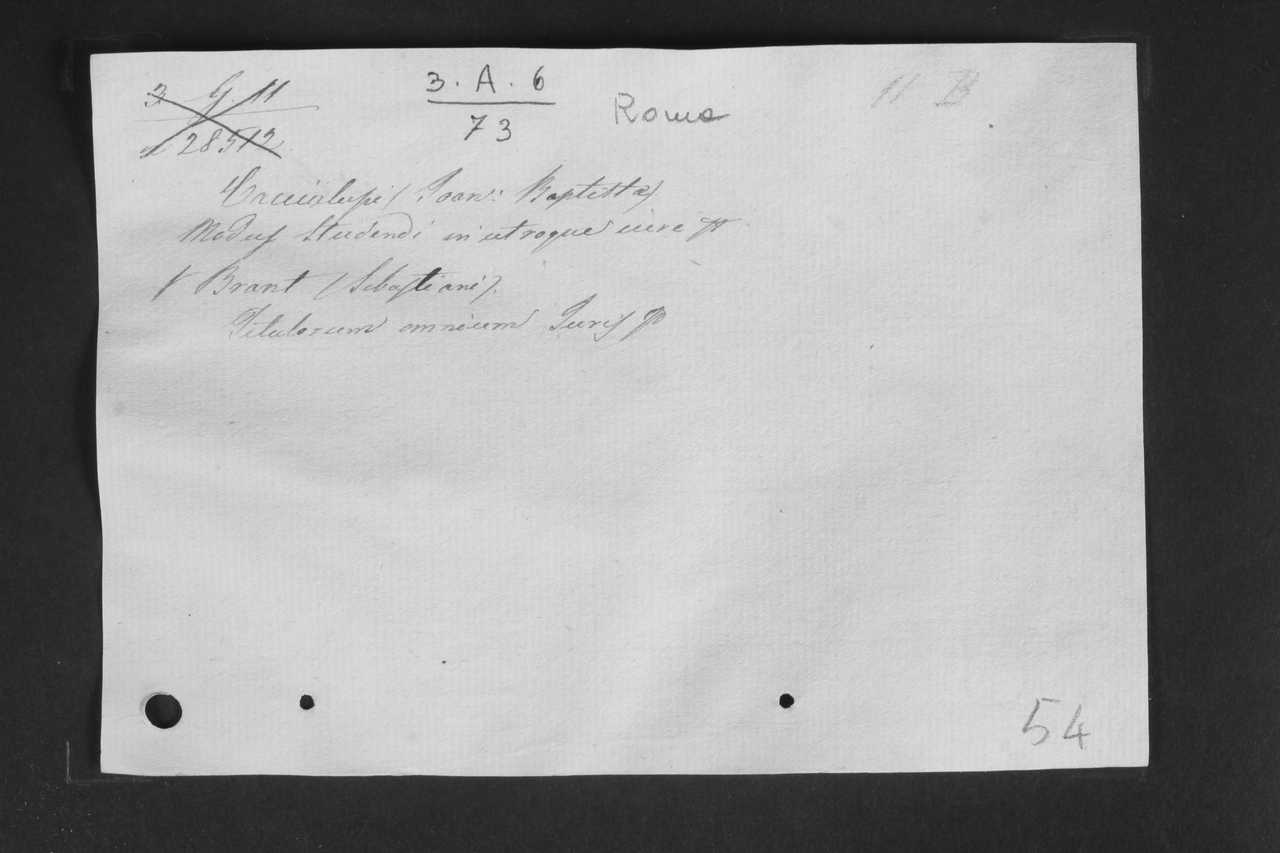 3 G. 11
28512
3. A. 6
73
Roma
11 B
Caccialupi (Joan: Baptistæ)
Modus studendi in utroque iure
Brant (Sebastiani).
Titulorum omnium Juris
54